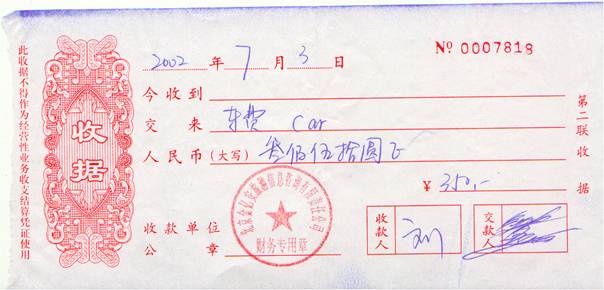 此收据不得作为经营性业务收支结算凭证使用
收据
2002 年 7 月 3 日
№ 0007818
今收到
交来 车费 Car
人民币(大写) 叁佰伍拾圆正
¥ 350,-
收款单位
公章
财务专用章
收款人 刘
交款人
第二联收据